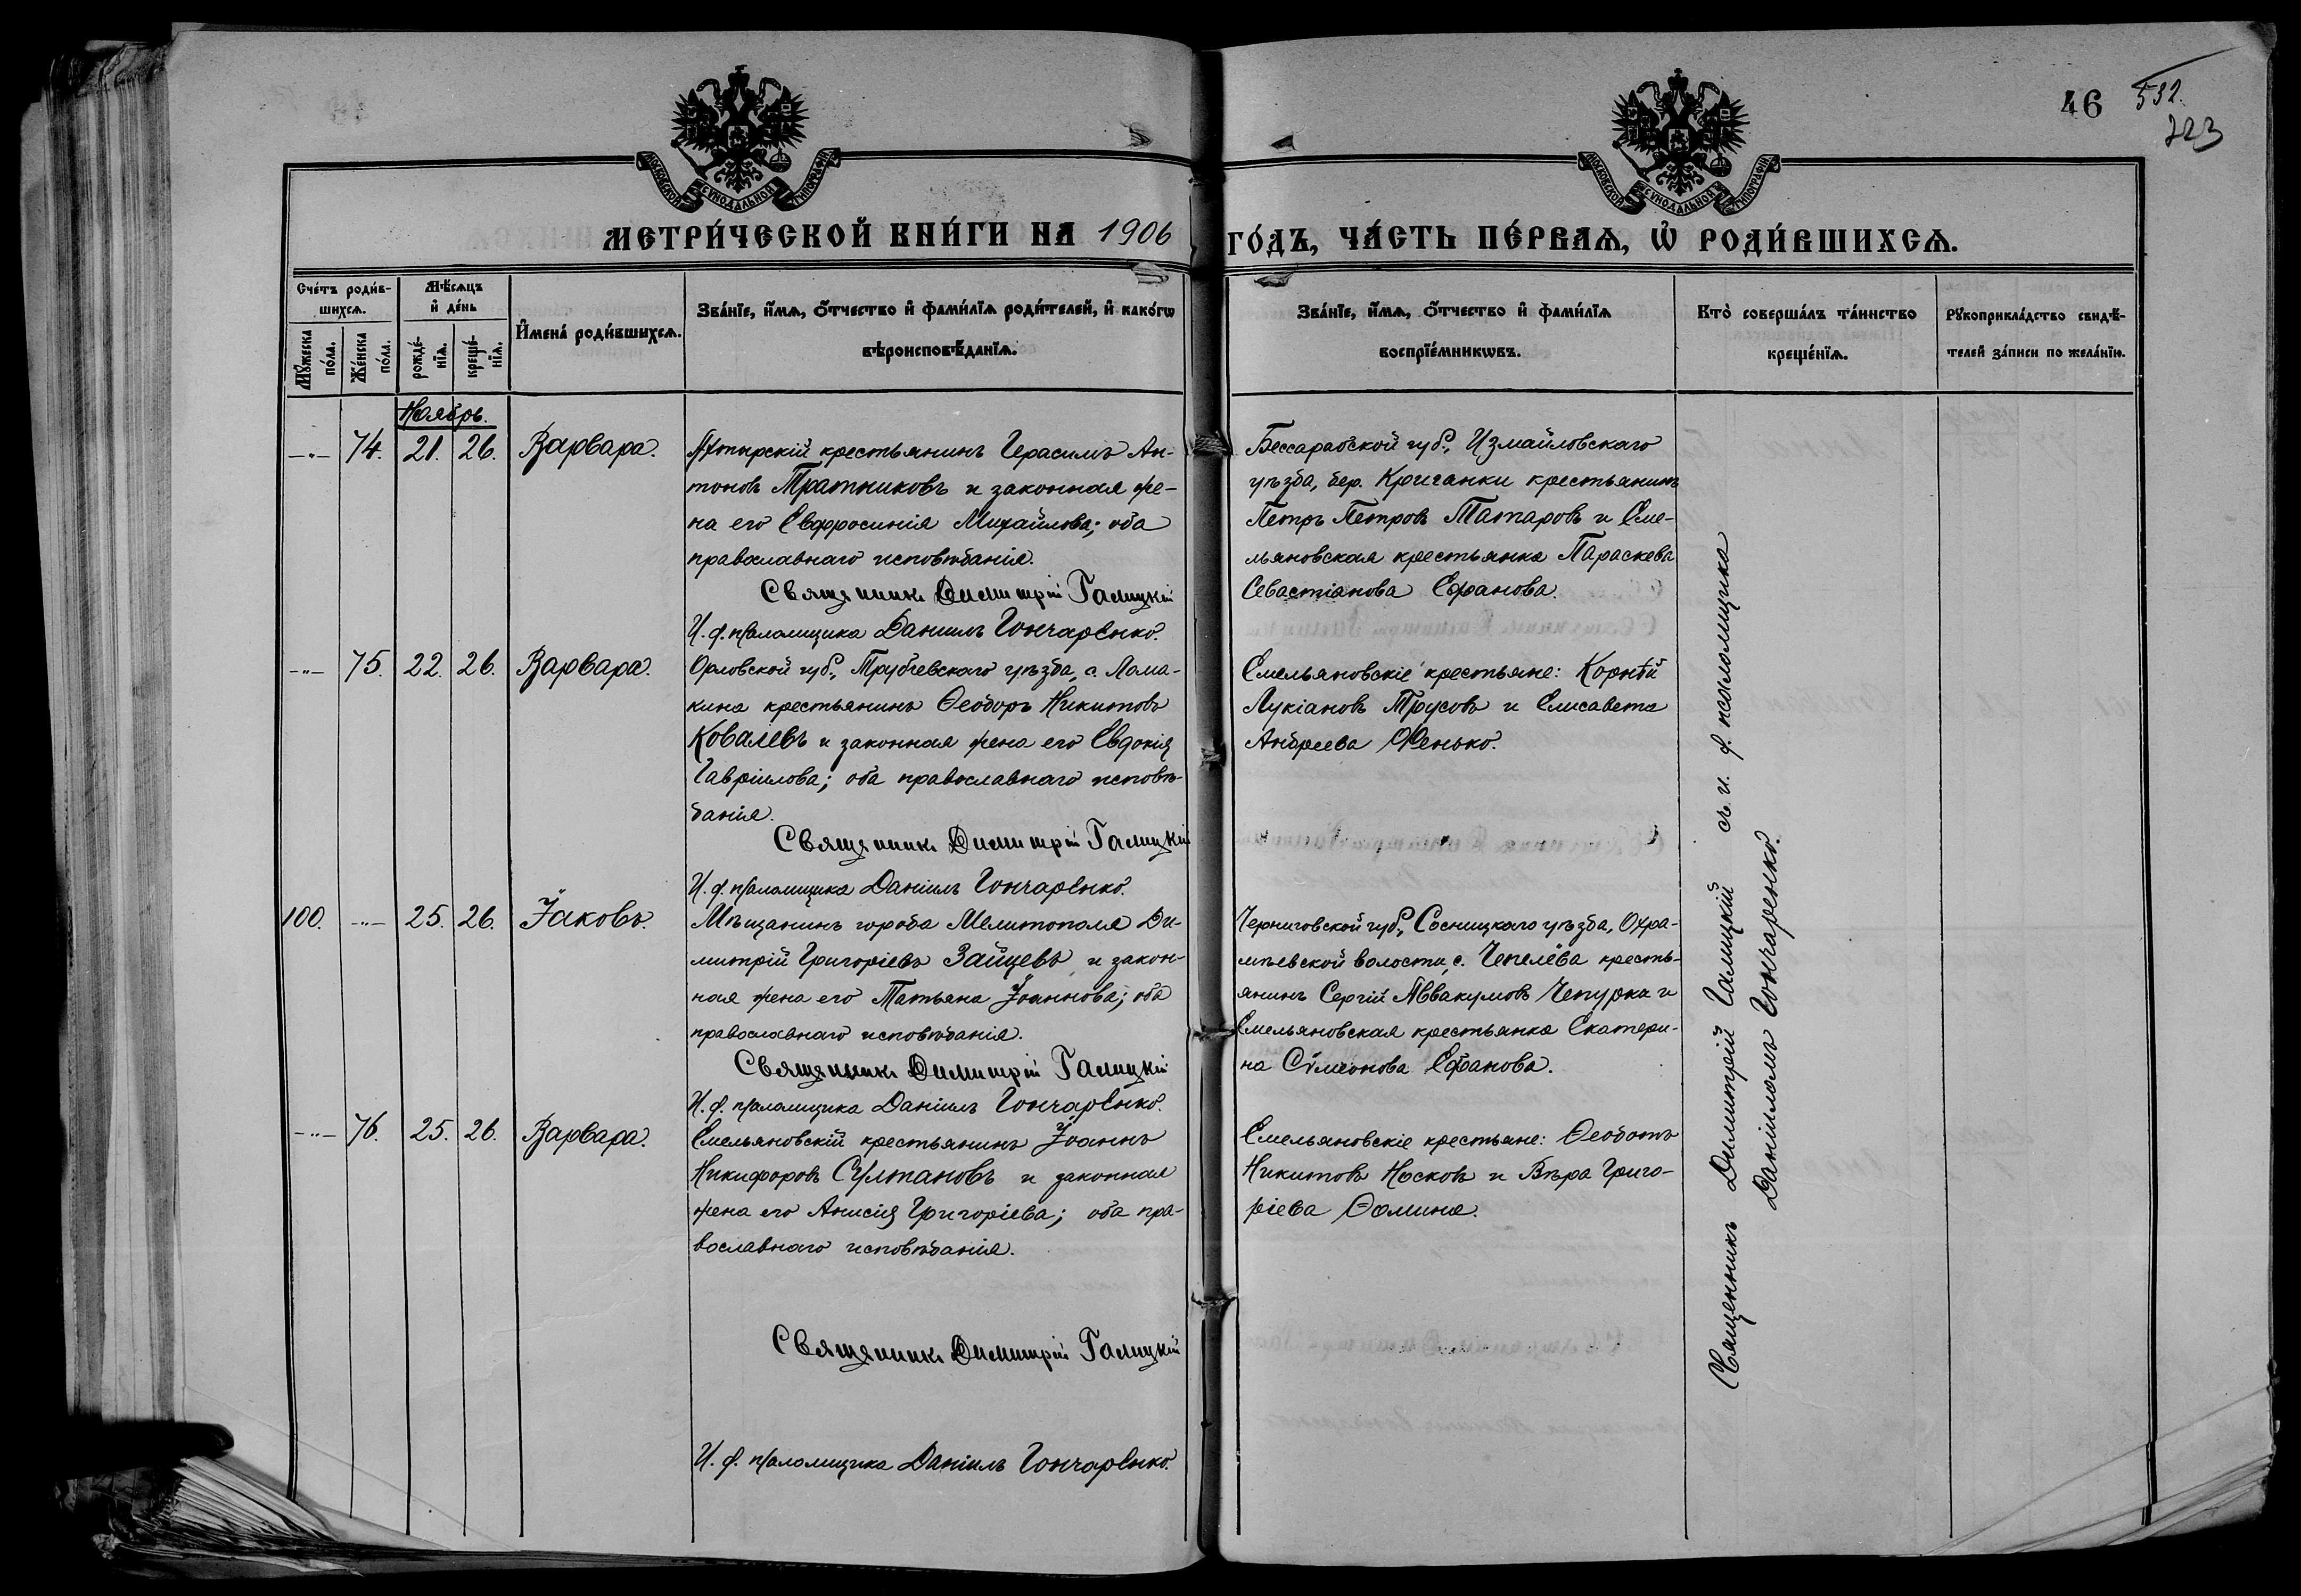 46 532.
723
МОСКОВСКОЙ СУНОДАЛЬНОЙ ТИПОГРАФІИ
МОСКОВСКОЙ СУНОДАЛЬНОЙ ТИПОГРАФІИ
МЕТРИ́ЧЕСКОЙ КНИ́ГИ НА 1906 ГО́ДЪ, ЧА́СТЬ ПЕ́РВАѦ, Ѽ РОДИ́ВШИХСѦ.
Сче́тъ роди́в-
шихсѧ.
Мꙋ́жеска по́ла.
Же́нска по́ла.
Мѣ́сѧцъ
и҆ де́нь
рожде́-
нїѧ.
креще́-
нїѧ.
И҆мена̀ роди́вшихсѧ.
Зва́нїе, и҆́мѧ, ѻ҆́тчество и҆ фами́лїѧ роди́телей, и҆ како́гѡ
вѣроисповѣ́данїѧ.
Зва́нїе, и҆́мѧ, ѻ҆́тчество и҆ фами́лїѧ
воспрїе́мникѡвъ.
Кто̀ соверша́лъ та́инство
креще́нїѧ.
Рꙋкоприкла́дство свидѣ́-
телей за́писи по жела́нїю.
Ноябрь.
-"- 74. 21. 26. Варвара.
Ахтырскій крестьянинъ Герасимъ Ан-
тоновъ Тратниковъ и законная же-
на его Евфросинія Михайлова; оба
православнаго исповѣданія.
Священникъ Димитрій Галицкій
И. ф. псаломщика Даніилъ Гончаренко.
Бессарабской губ., Измайловскаго
уѣзда, дер. Кричанки крестьянинъ
Петръ Петровъ Татаровъ и Еме-
льяновская крестьянка Параскева
Севастіанова Ефанова.
-"- 75. 22. 26. Варвара.
Орловской губ., Трубчевскаго уѣзда, с. Лома-
кина крестьянинъ Ѳеодоръ Никитовъ
Ковалевъ и законная жена его Евдокія
Гавріилова; оба православнаго исповѣ-
данія.
Священникъ Димитрій Галицкій
И. ф. псаломщика Даніилъ Гончаренко.
Емельяновскіе крестьяне: Корнѣй
Лукіановъ Трусовъ и Елисавета
Андреева Фенько.
100. -"- 25. 26. Іаковъ.
Мѣщанинъ города Мелитополя Ди-
митрій Григоріевъ Зайцевъ и закон-
ная жена его Татьяна Іоаннова; оба
православнаго исповѣданія.
Священникъ Димитрій Галицкій
И. ф. псаломщика Даніилъ Гончаренко.
Черниговской губ., Сосницкаго уѣзда, Охра-
міевской волости, с. Чепелева кресть-
янинъ Сергій Аввакумовъ Чепурка и
Емельяновская крестьянка Екатери-
на Сѵмеонова Ефанова.
-"- 76. 25. 26. Варвара.
Емельяновскій крестьянинъ Іоаннъ
Никифоровъ Султановъ и законная
жена его Анисія Григоріева; оба пра-
вославнаго исповѣданія.
Священникъ Димитрій Галицкій
И. ф. псаломщика Даніилъ Гончаренко.
Емельяновскіе крестьяне: Ѳеодотъ
Никитовъ Носковъ и Вѣра Григо-
ріева Ѳомина.
Священникъ Димитрій Галицкій съ и. ф. псаломщика
Даніиломъ Гончаренко.